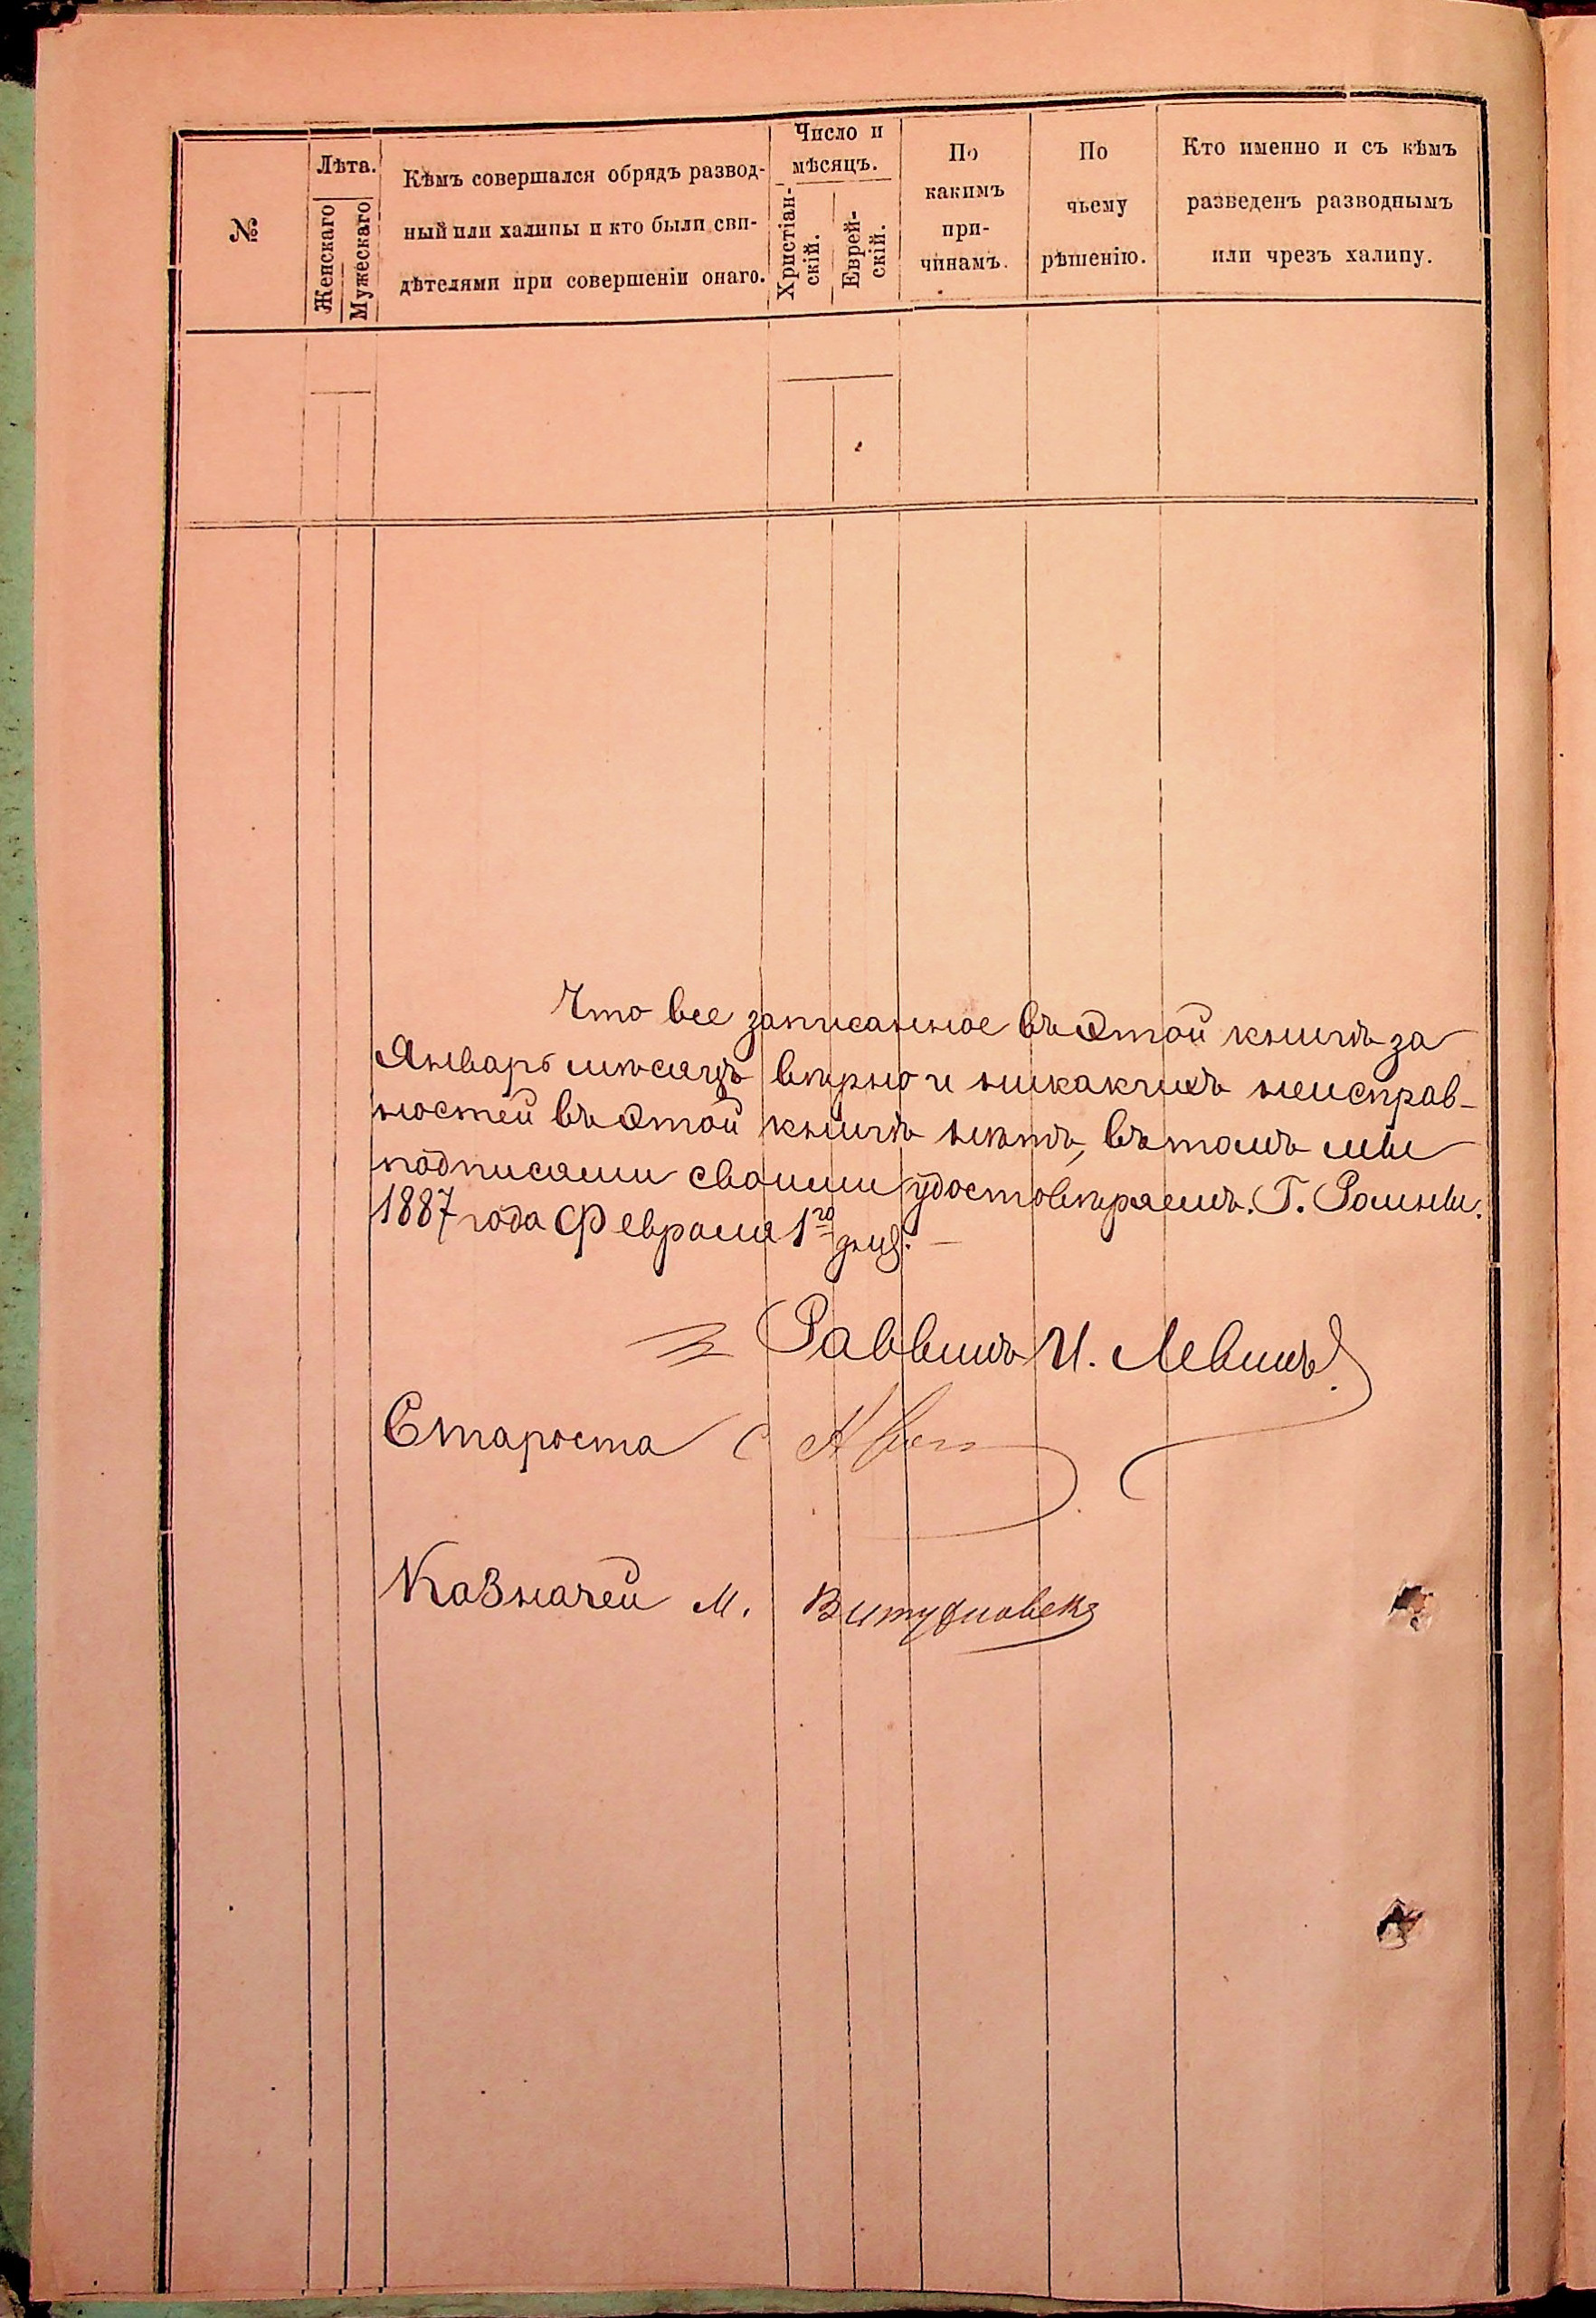 №
Лѣта.
Женскаго
Мужескаго
Кѣмъ совершался обрядъ развод-
ный или халицы и кто были сви-
дѣтелями при совершеніи онаго.
Число и
мѣсяцъ.
Христіан-
скій.
Еврей-
скій.
По
какимъ
при-
чинамъ.
По
чьему
рѣшенію.
Кто именно и съ кѣмъ
разведенъ разводнымъ
или чрезъ халицу.
Что все записанное въ этой книгѣ за
Январь мѣсяцъ вѣрно и никакихъ неисправ-
ностей въ этой книгѣ нѣтъ, въ томъ мы
подписями своими удостовѣряемъ. Г. Ромны.
1887 года Февраля 1го дня. –
Раввинъ И. Левинъ
Староста
Казначей М.